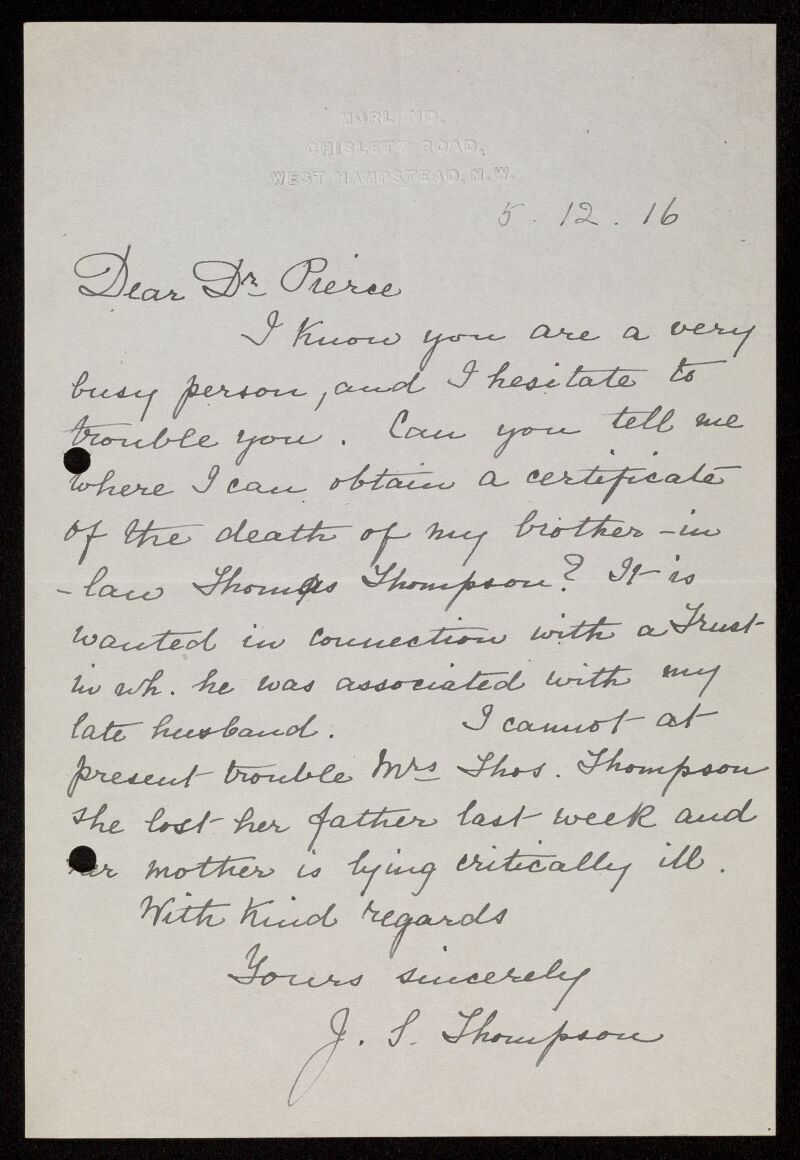 MORLAND,
CHISLETT ROAD,
WEST HAMPSTEAD, N.W.
5. 12. 16
Dear Dr Pierce
I know you are a very
busy person, and I hesitate to
trouble you. Can you tell me
where I can obtain a certificate
of the death of my brother-in
-law Thomas Thompson? It is
wanted in connection with a Trust
in wh. he was associated with my
late husband. I cannot at
present trouble Mrs Thos. Thompson
she lost her father last week and
her mother is lying critically ill.
With Kind regards
Yours sincerely
J. S. Thompson